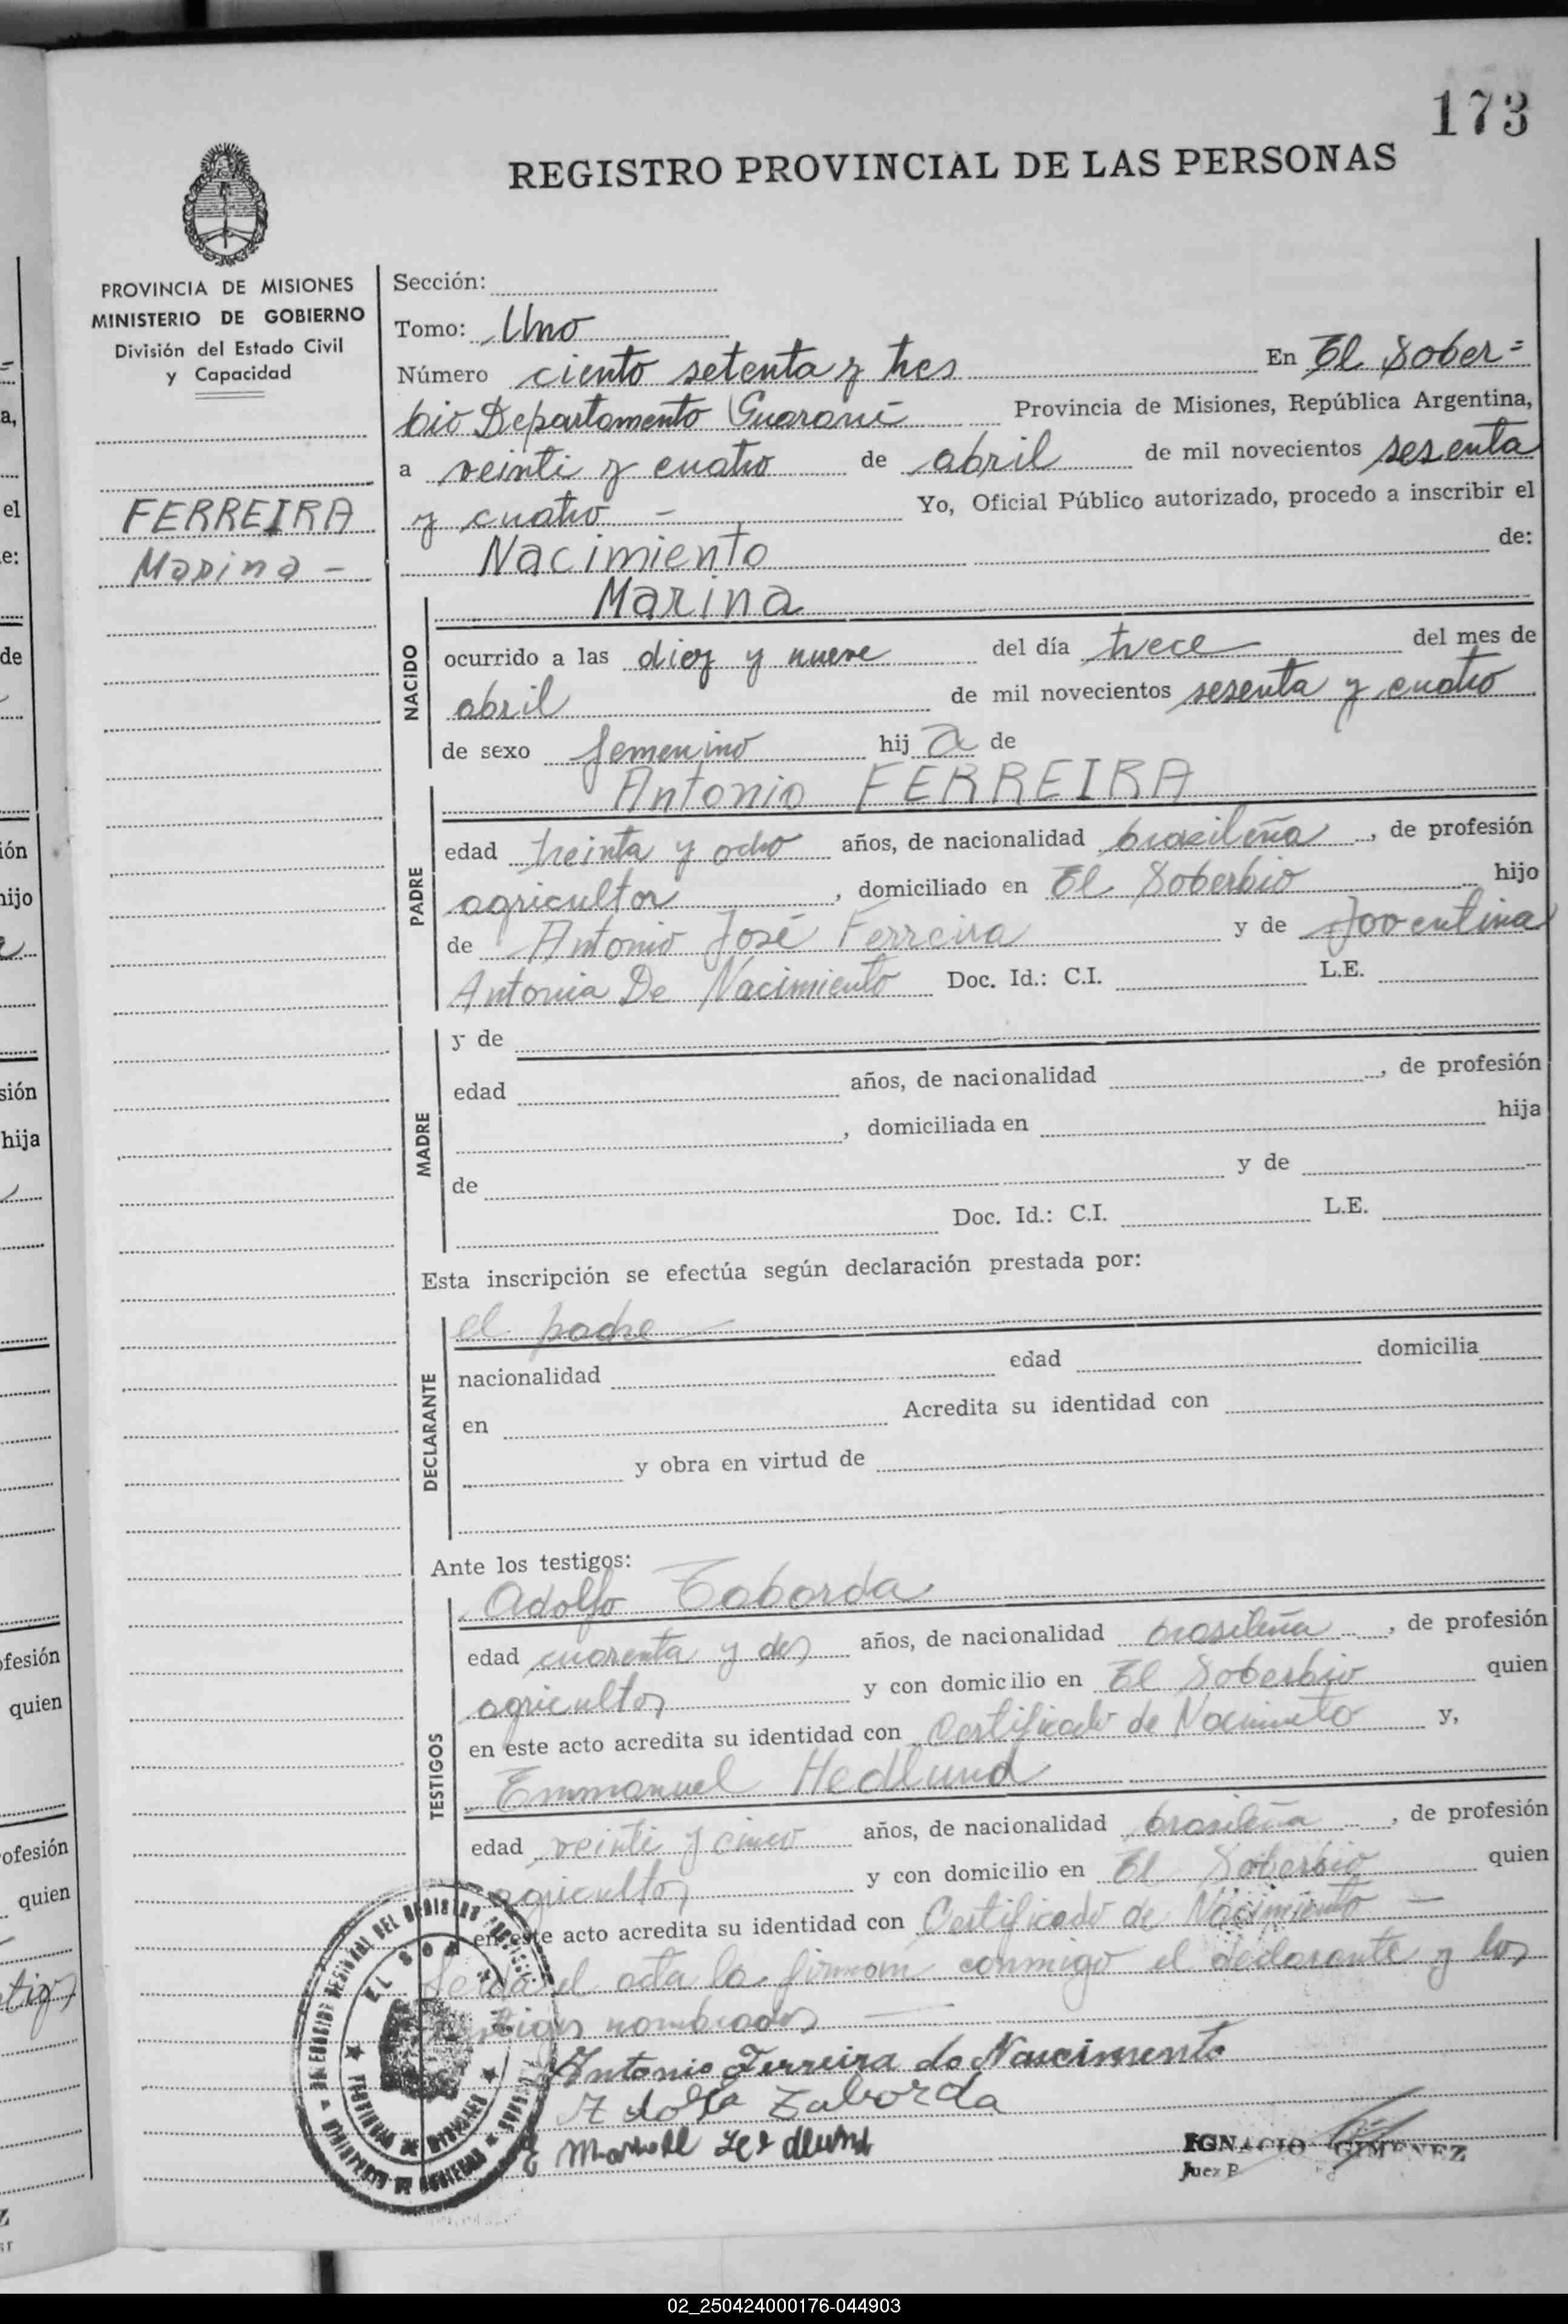 173
REGISTRO PROVINCIAL DE LAS PERSONAS
PROVINCIA DE MISIONES
MINISTERIO DE GOBIERNO
División del Estado Civil
y Capacidad
FERREIRA
Marina -
Sección:
Tomo: Uno
Número ciento setenta y tres En El Sober=
bio Departamento Guaraní Provincia de Misiones, República Argentina,
a veinti y cuatro de abril de mil novecientos sesenta
y cuatro - Yo, Oficial Público autorizado, procedo a inscribir el
Nacimiento de:
NACIDO
Marina
ocurrido a las diez y nueve del día trece del mes de
abril de mil novecientos sesenta y cuatro
de sexo femenino hija de
PADRE
Antonio FERREIRA
edad treinta y ocho años, de nacionalidad brasileña, de profesión
agricultor, domiciliado en El Soberbio hijo
de Antonio José Ferreira y de Joventina
Antonia De Nacimiento Doc. Id.: C.I. L.E.
MADRE
y de
edad años, de nacionalidad , de profesión
, domiciliada en hija
de y de
Doc. Id.: C.I. L.E.
Esta inscripción se efectúa según declaración prestada por:
DECLARANTE
el padre
nacionalidad edad domicilia
en Acredita su identidad con
y obra en virtud de
Ante los testigos:
TESTIGOS
Adolfo Taborda
edad cuarenta y dos años, de nacionalidad brasileña, de profesión
agricultor y con domicilio en El Soberbio quien
en este acto acredita su identidad con Certificado de Nacimiento y,
Emmanuel Hedlund
edad veinti y cinco años, de nacionalidad brasileña, de profesión
agricultor y con domicilio en El Soberbio quien
en este acto acredita su identidad con Certificado de Nacimiento -
Leida el acta la firman conmigo el declarante y los
testigos nombrados
Antonio Ferreira do Nascimento
Adolfo Taborda
IGNACIO GIMENEZ
Juez
EL SOB
a,
el
e:
de
ión
hijo
sión
hija
ofesión
quien
ofesión
quien
02_250424000176-044903